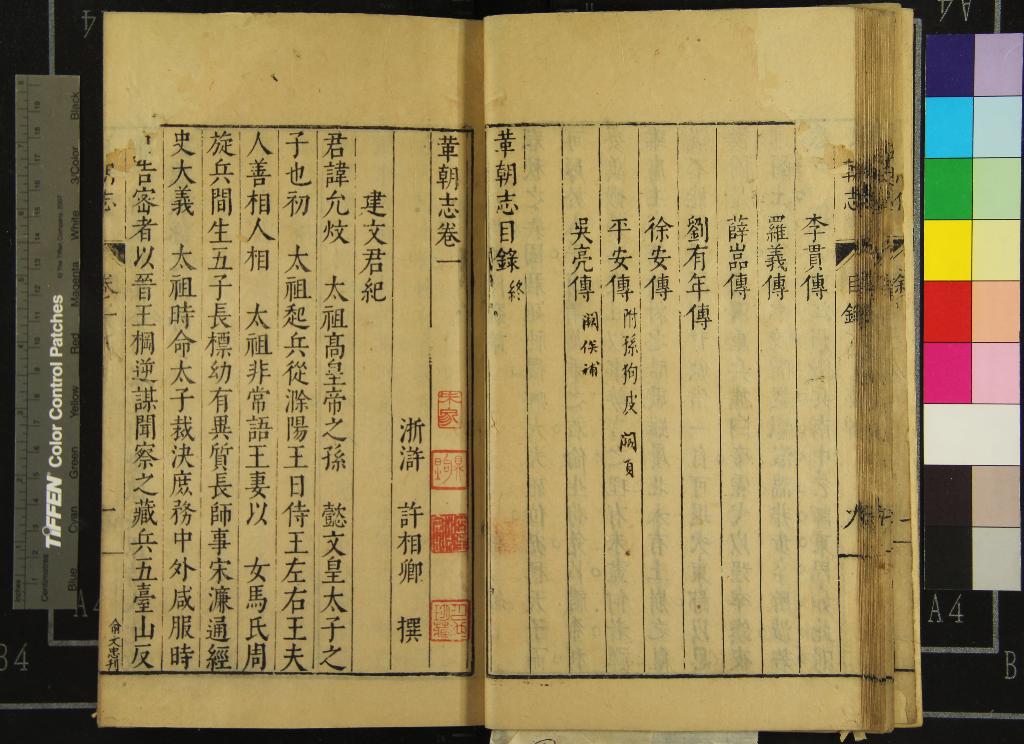 李貫傳
羅義傳
薛嵓傳
劉有年傳
徐安傳
平安傳 附孫狗皮 闕頁
吳亮傳 闕俟補
革朝志目錄 終
目錄
革朝志卷一
浙滸 許相卿 撰
建文君紀
君諱允炆 太祖高皇帝之孫 懿文皇太子之
子也初 太祖起兵從滁陽王日侍王左右王夫
人善相人相 太祖非常語王妻以 女馬氏周
旋兵間生五子長標幼有異質長師事宋濂通經
史大義 太祖時命太子裁決庶務中外咸服時
告密者以晉王棡逆謀聞察之藏兵五臺山反
俞文忠刊
TIFFEN Color Control Patches
© The Tiffen Company, 2007
Inches
Centimetres
Blue
Cyan
Green
Yellow
Red
Magenta
White
3/Color
Black
A4
B4
A4
B